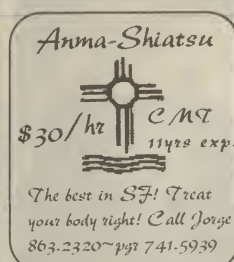 Anma-Shiatsu
$30/hr
CMT
11yrs exp.
The best in SF! Treat
your body right! Call Jorge
863.2320~pgr 741.5939